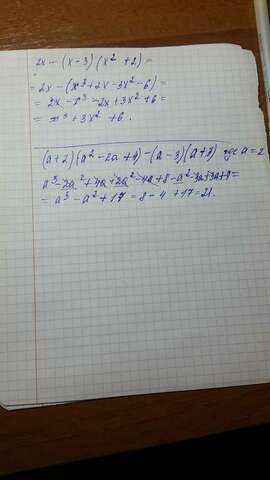 2x - (x-3)(x² + 2) =
= 2x - (x³ + 2x - 3x² - 6) =
= 2x - x³ - 2x + 3x² + 6 =
= x³ + 3x² + 6.
(a+2)(a² - 2a + 4) - (a-3)(a+3) где a = 2
a³ - 2a² + 4a + 2a² - 4a + 8 - a² - 3a + 3a + 9 =
= a³ - a² + 17 = 8 - 4 + 17 = 21.